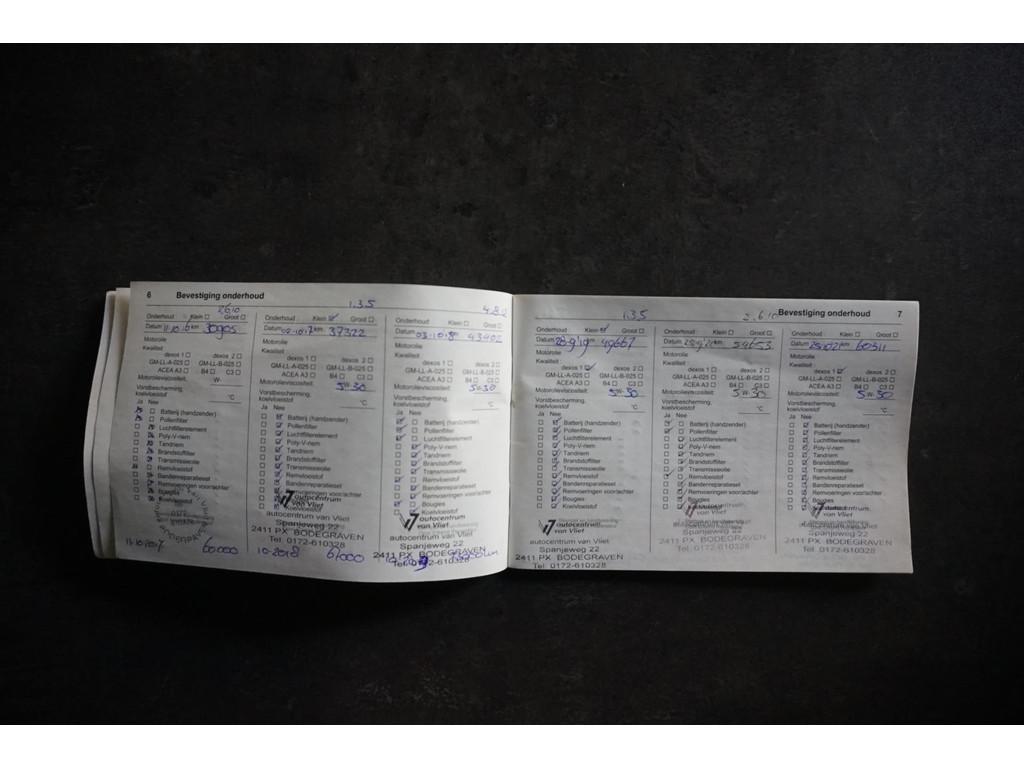 6 Bevestiging onderhoud
1.3.5
2610
4.8.2
Onderhoud Klein Groot
Datum 11-10-16 km 30905
Motorolie
Kwaliteit
dexos 1 dexos 2
GM-LL-A-025 GM-LL-B-025
ACEA A3 B4 C3
Motorolieviscositeit W-
Vorstbescherming, koelvloeistof °C
Ja Nee
Batterij (handzender)
Pollenfilter
Luchtfilterelement
Poly-V-riem
Tandriem
Brandstoffilter
Transmissieolie
Remvloeistof
Bandenreparatieset
Remvoeringen voor/achter
Bougies
Koelvloeistof
11-10-2017 60.000
Onderhoud Klein Groot
Datum 02-10-17 km 37322
Motorolie
Kwaliteit
dexos 1 dexos 2
GM-LL-A-025 GM-LL-B-025
ACEA A3 B4 C3
Motorolieviscositeit 5W-30
Vorstbescherming, koelvloeistof °C
Ja Nee
Batterij (handzender)
Pollenfilter
Luchtfilterelement
Poly-V-riem
Tandriem
Brandstoffilter
Transmissieolie
Remvloeistof
Bandenreparatieset
Remvoeringen voor/achter
Koelvloeistof
autocentrum
van Vliet
autocentrum van Vliet
Spanjeweg 22
2411 PX BODEGRAVEN
Tel: 0172-610328
10-2018
Onderhoud Klein Groot
Datum 03-10-18 43402
Motorolie
Kwaliteit
dexos 1 dexos 2
GM-LL-A-025 GM-LL-B-025
ACEA A3 B4 C3
Motorolieviscositeit 5W-30
Vorstbescherming, koelvloeistof °C
Ja Nee
Batterij (handzender)
Pollenfilter
Luchtfilterelement
Poly-V-riem
Tandriem
Brandstoffilter
Transmissieolie
Remvloeistof
Bandenreparatieset
Remvoeringen voor/achter
Bougies
Koelvloeistof
autocentrum
van Vliet
autocentrum van Vliet
Spanjeweg 22
2411 PX BODEGRAVEN
Tel: 0172-610328
Bevestiging onderhoud 7
1.3.5
2.6.10
Onderhoud Klein Groot
Datum 28-9-'19 km 49667
Motorolie
Kwaliteit
dexos 1 dexos 2
GM-LL-A-025 GM-LL-B-025
ACEA A3 B4 C3
Motorolieviscositeit 5W-30
Vorstbescherming, koelvloeistof °C
Ja Nee
Batterij (handzender)
Pollenfilter
Luchtfilterelement
Poly-V-riem
Tandriem
Brandstoffilter
Transmissieolie
Remvloeistof
Bandenreparatieset
Remvoeringen voor/achter
Bougies
Koelvloeistof
autocentrum
van Vliet
autocentrum van Vliet
Spanjeweg 22
2411 PX BODEGRAVEN
Tel: 0172-610328
Onderhoud Klein Groot
Datum km 54653
Motorolie
Kwaliteit
dexos 1 dexos 2
GM-LL-A-025 GM-LL-B-025
ACEA A3 B4 C3
Motorolieviscositeit 5W-30
Vorstbescherming, koelvloeistof °C
Ja Nee
Batterij (handzender)
Pollenfilter
Luchtfilterelement
Poly-V-riem
Tandriem
Brandstoffilter
Transmissieolie
Remvloeistof
Bandenreparatieset
Remvoeringen voor/achter
Bougies
Koelvloeistof
autocentrum van Vliet
Spanjeweg 22
2411 PX BODEGRAVEN
Tel: 0172-610328
Onderhoud Klein Groot
Datum km 60311
Motorolie
Kwaliteit
dexos 1 dexos 2
GM-LL-A-025 GM-LL-B-025
ACEA A3 B4 C3
Motorolieviscositeit 5W-30
Vorstbescherming, koelvloeistof °C
Ja Nee
Batterij (handzender)
Pollenfilter
Luchtfilterelement
Poly-V-riem
Tandriem
Brandstoffilter
Transmissieolie
Remvloeistof
Bandenreparatieset
Remvoeringen voor/achter
Bougies
Koelvloeistof
autocentrum
van Vliet
autocentrum van Vliet
Spanjeweg 22
2411 PX BODEGRAVEN
Tel: 0172-610328